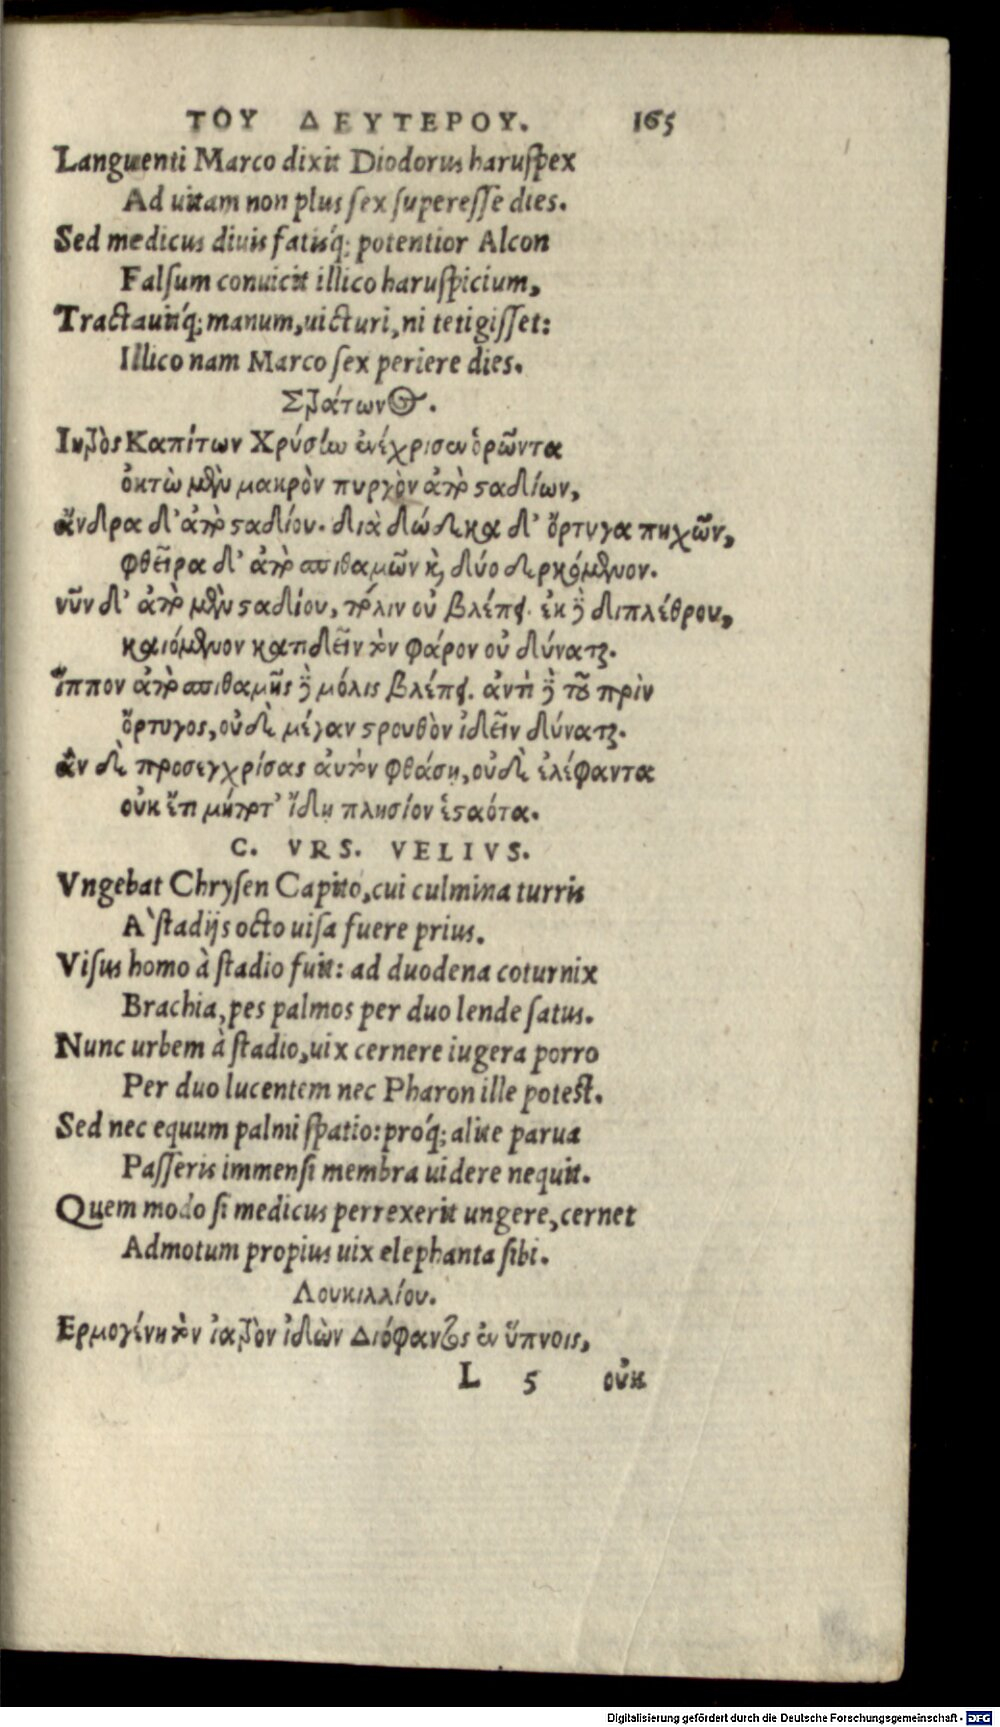 ΤΟΥ ΔΕΥΤΕΡΟΥ. 165
Languenti Marco dixit Diodorus haruſpex
Ad uitam non plus ſex ſupereſſe dies.
Sed medicus diuis fatiśq; potentior Alcon
Falſum conuicit illico haruſpicium,
Tractauit́q; manum, uicturi, ni tetigiſſet:
Illico nam Marco ſex periere dies.
Στράτωνος.
Ιητρὸς Καπίτων Χρύσίω ἐνέχρισεν ὁρῶντα
ὀκτὼ μὲν μακρὸν πυργὸν ἀπὸ σταδίων,
ἄνδρα δ' ἀπὸ σταδίου. διὰ δώδεκα δ' ὄρτυγα πηχῶν,
φθεῖρα δ' ἀπὸ σπιθαμῶν καὶ δύο δερκόμενον.
νῦν δ' ἀπὸ μὲν σταδίου, πόλιν οὐ βλέπει. ἐκ δὲ διπλέθρου,
καιόμενον κατιδεῖν τὸν φάρον οὐ δύναται.
ἵππον ἀπὸ σπιθαμῆς δὲ μόλις βλέπει. ἀντὶ δὲ τοῦ πρὶν
ὄρτυγος, οὐδὲ μέγαν στρουθὸν ἰδεῖν δύναται.
ἂν δὲ προσεγχρίσας αὐτὸν φθάσῃ, οὐδὲ ἐλέφαντα
οὐκ ἔτι μήποτ' ἴδῃ πλησίον ἑσταότα.
C. VRS. VELIVS.
Vngebat Chryſen Capito, cui culmina turris
A` ſtadijs octo uiſa fuere prius.
Viſus homo à ſtadio fuit: ad duodena coturnix
Brachia, pes palmos per duo lende ſatus.
Nunc urbem à ſtadio, uix cernere iugera porro
Per duo lucentem nec Pharon ille poteſt.
Sed nec equum palmi ſpatio: pro´q; alite parua
Paſſeris immenſi membra uidere nequit.
Quem modo ſi medicus perrexerit ungere, cernet
Admotum propius uix elephanta ſibi.
Λουκιλλίου.
Ερμογένη τὸν ἰατρὸν ἰδὼν Διόφαντος ἐν ὕπνοις,
L 5 οὐκ
Digitalisierung gefördert durch die Deutsche Forschungsgemeinschaft - DFG